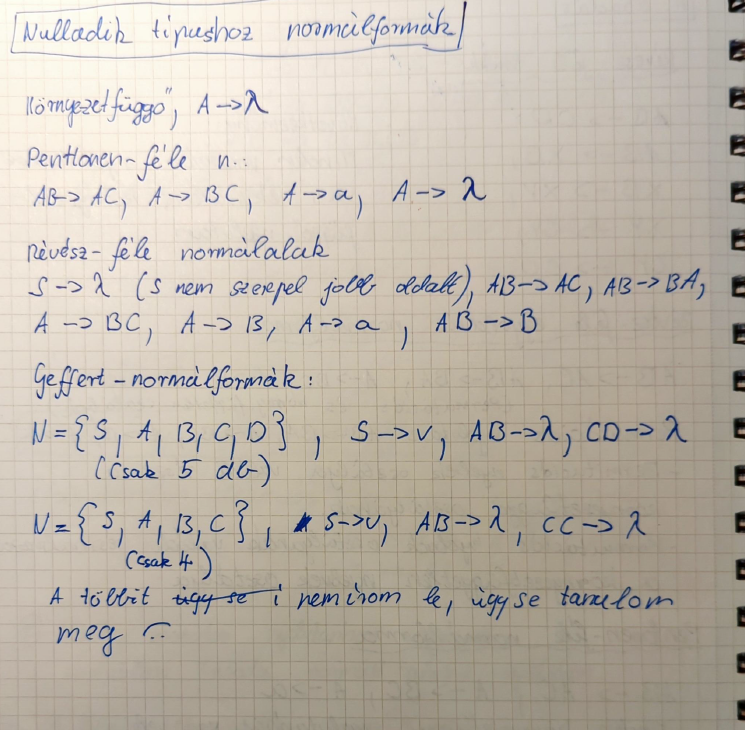 Nulladik típushoz normálformák
Környezetfüggő, A → λ
Penttonen-féle n.:
AB → AC, A → BC, A → a, A → λ
Révész-féle normálalak
S → λ (S nem szerepel jobb oldalt), AB → AC, AB → BA,
A → BC, A → B, A → a, AB → B
Geffert-normálformák:
N = {S, A, B, C, D}, S → v, AB → λ, CD → λ
(Csak 5 db)
N = {S, A, B, C}, S → v, AB → λ, CC → λ
(csak 4)
A többit úgy se i nem írom le, úgyse tanulom
meg :(